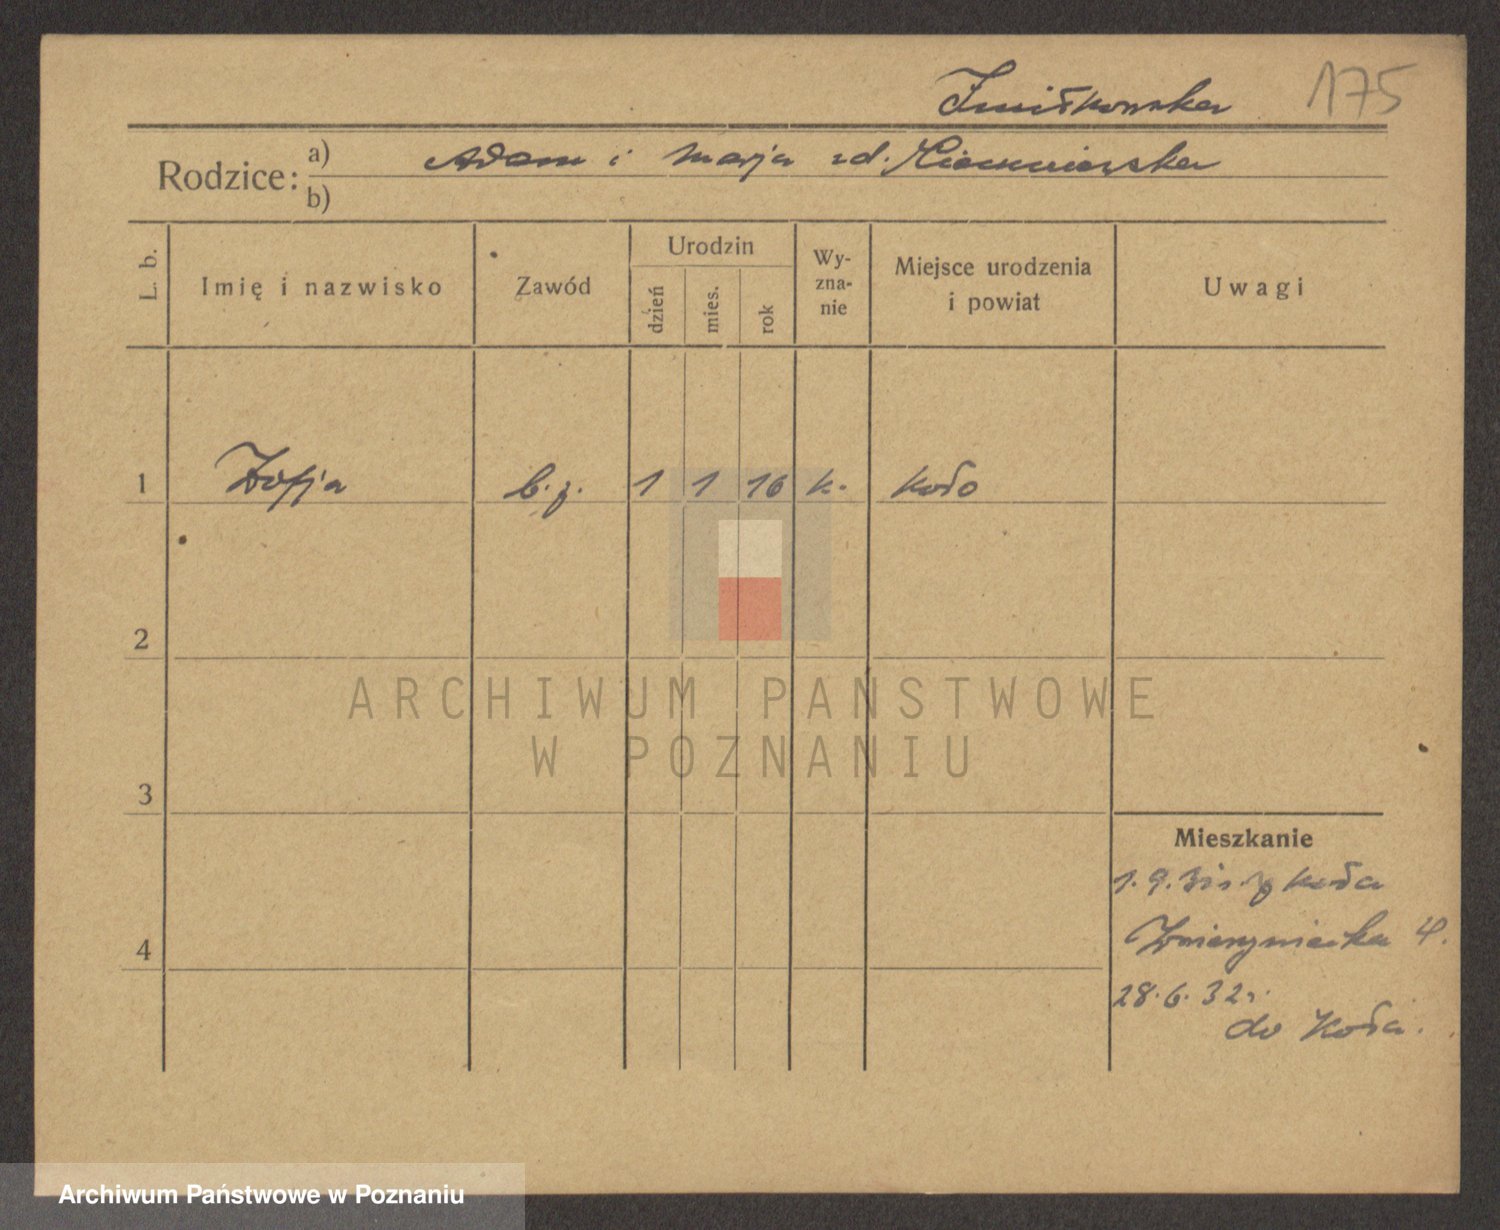 Imiłkowska 175
Rodzice: a) Adam i Marja zd.
b)
L. b.
Imię i nazwisko
Zawód
Urodzin
dzień
mies.
rok
Wy-
zna-
nie
Miejsce urodzenia
i powiat
Uwagi
1 Zofja b. z. 1 1 16 k. Koło
2
3
4
Mieszkanie
1. 9. 31 r. z Koła
Zwierzyniecka 4.
28. 6. 32 r.
do Koła.
ARCHIWUM PAŃSTWOWE
W POZNANIU
Archiwum Państwowe w Poznaniu